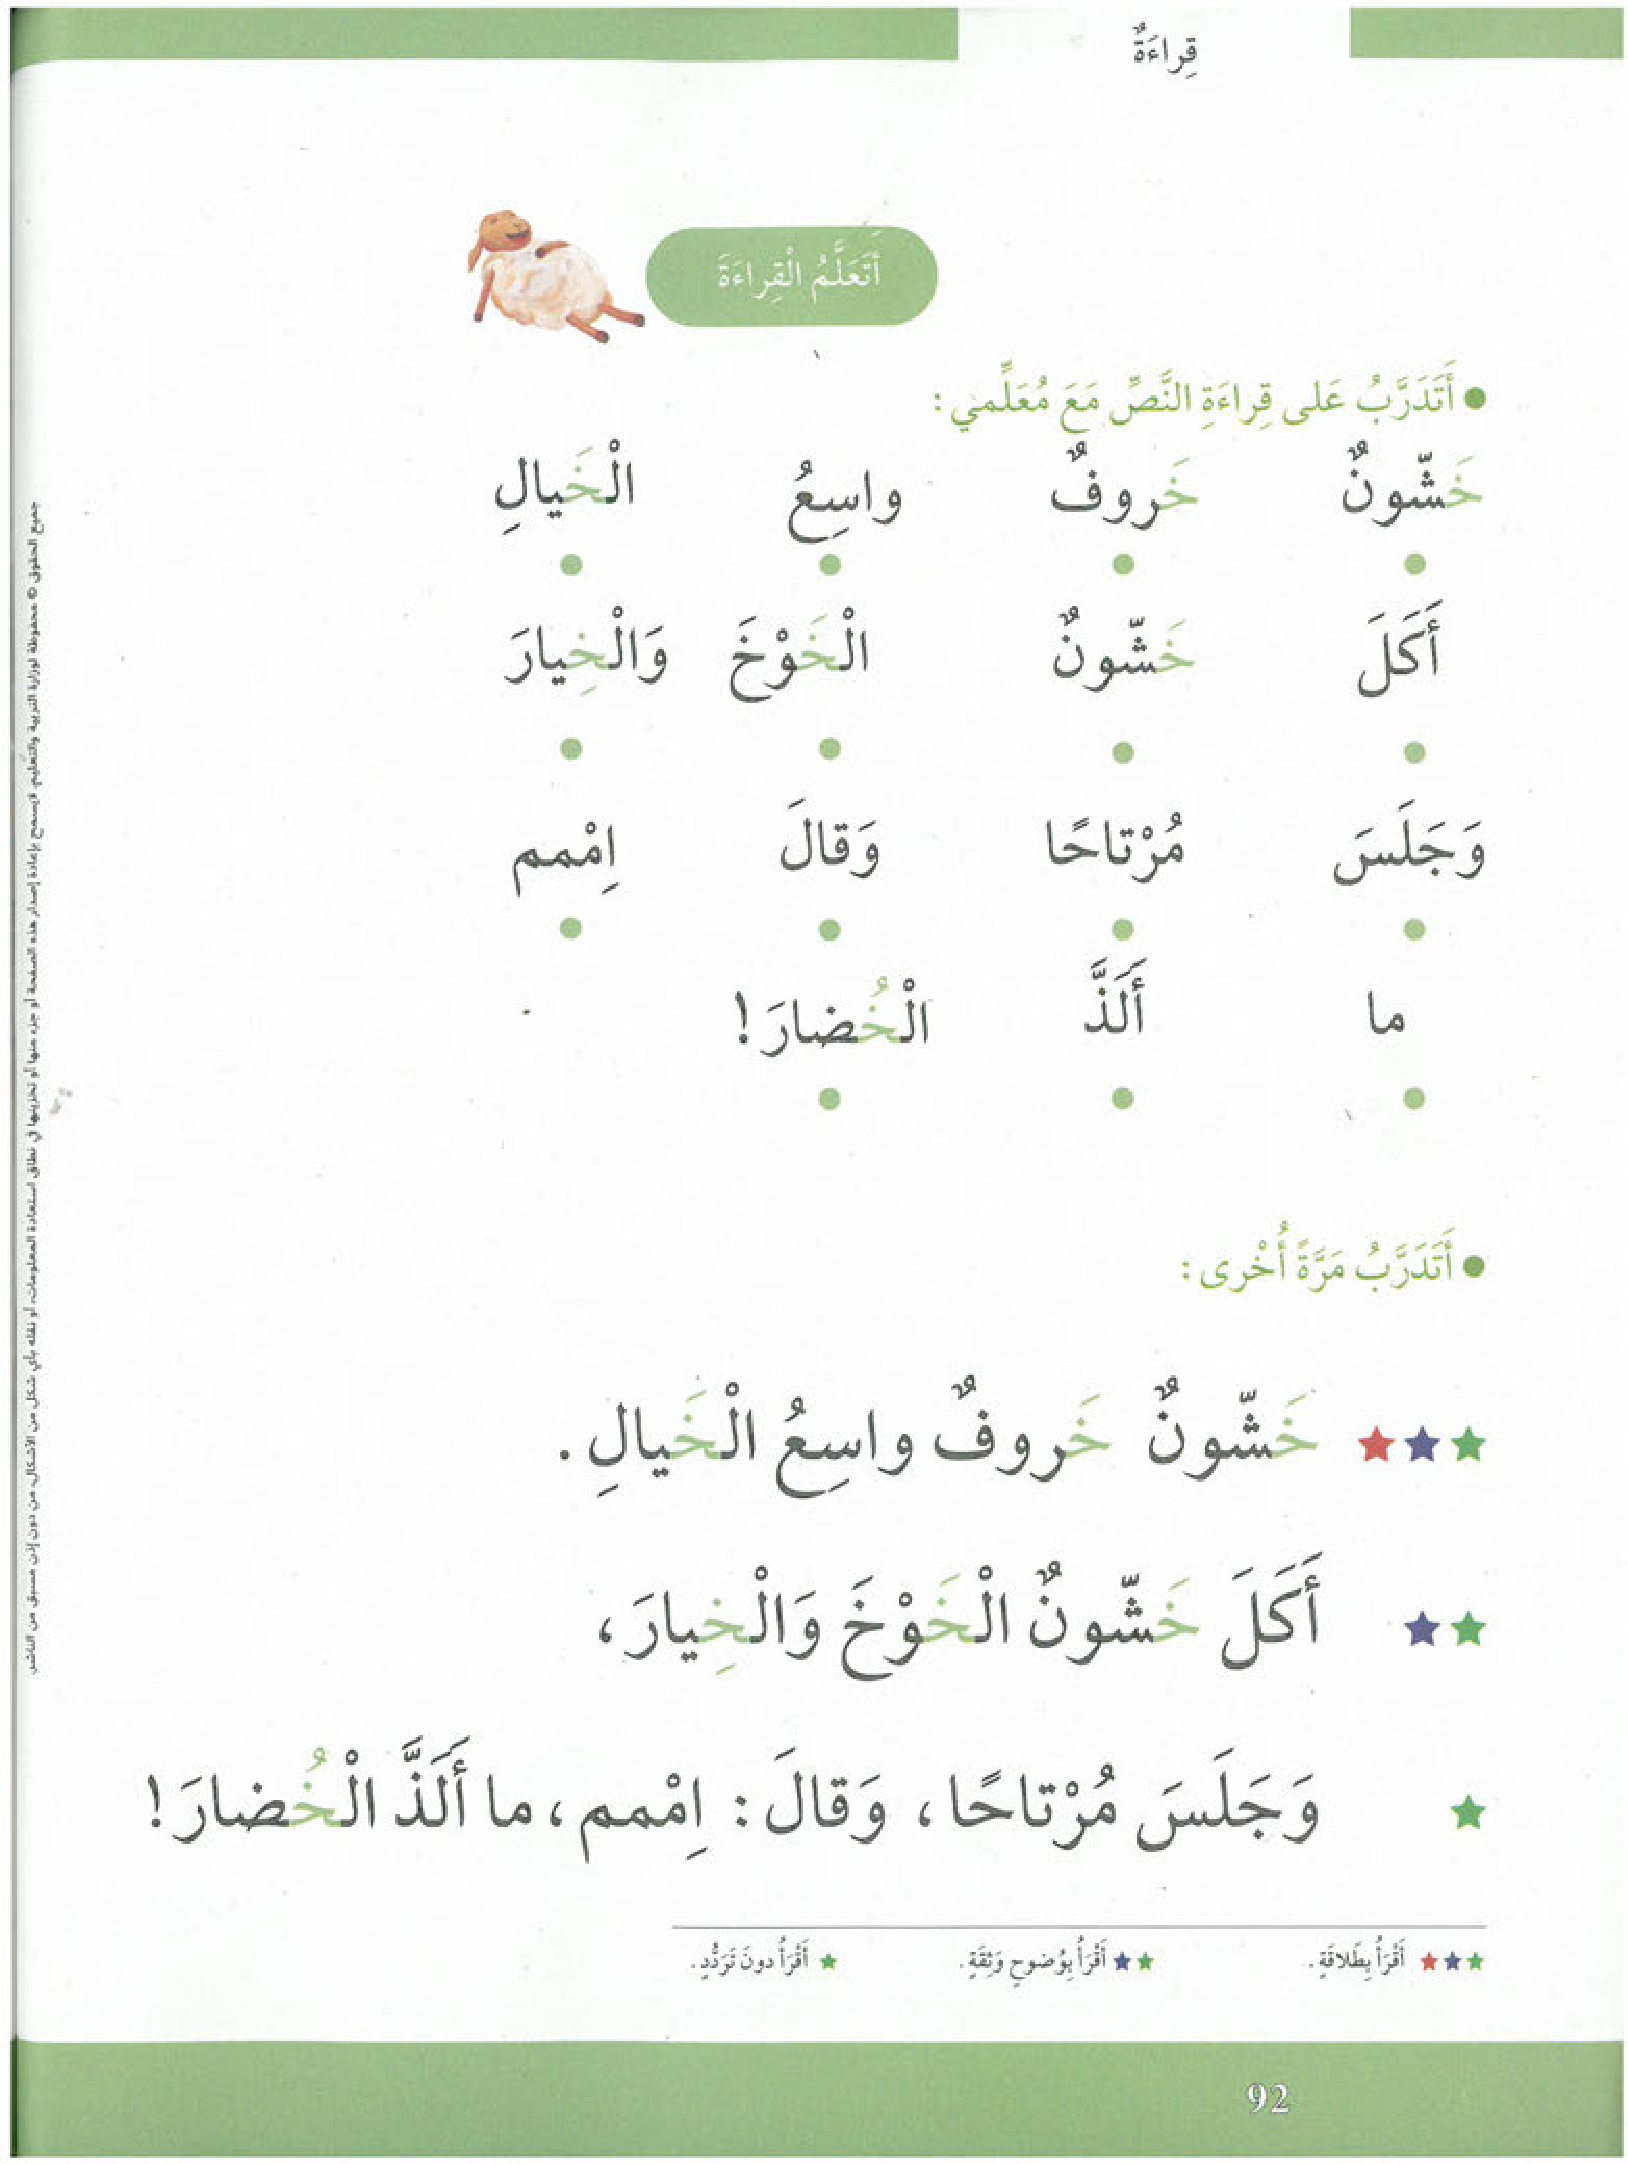 قِراءَةٌ
أَتَعَلَّمُ الْقِراءَةَ
● أَتَدَرَّبُ عَلى قِراءَةِ النَّصِّ مَعَ مُعَلِّمي :
خَشّونٌ خَروفٌ واسِعُ الْخَيالِ
أَكَلَ خَشّونٌ الْخَوْخَ وَالْخِيارَ
وَجَلَسَ مُرْتاحًا وَقالَ اِمْمم
ما أَلَذَّ الْخُضارَ !
● أَتَدَرَّبُ مَرَّةً أُخْرى :
خَشّونٌ خَروفٌ واسِعُ الْخَيالِ .
أَكَلَ خَشّونٌ الْخَوْخَ وَالْخِيارَ ،
وَجَلَسَ مُرْتاحًا ، وَقالَ : اِمْمم ، ما أَلَذَّ الْخُضارَ !
أَقْرَأُ بِطَلاقَةٍ . أَقْرَأُ بِوُضوحٍ وَثِقَةٍ . أَقْرَأُ دونَ تَرَدُّدٍ .
92
جميع الحقوق © محفوظة لوزارة التربية والتعليم. لايسمح بإعادة إصدار هذه الصفحة أو جزء منها أو تخزينها في نطاق استعادة المعلومات، أو نقله بأي شكل من الأشكال، من دون إذن مسبق من الناشر.